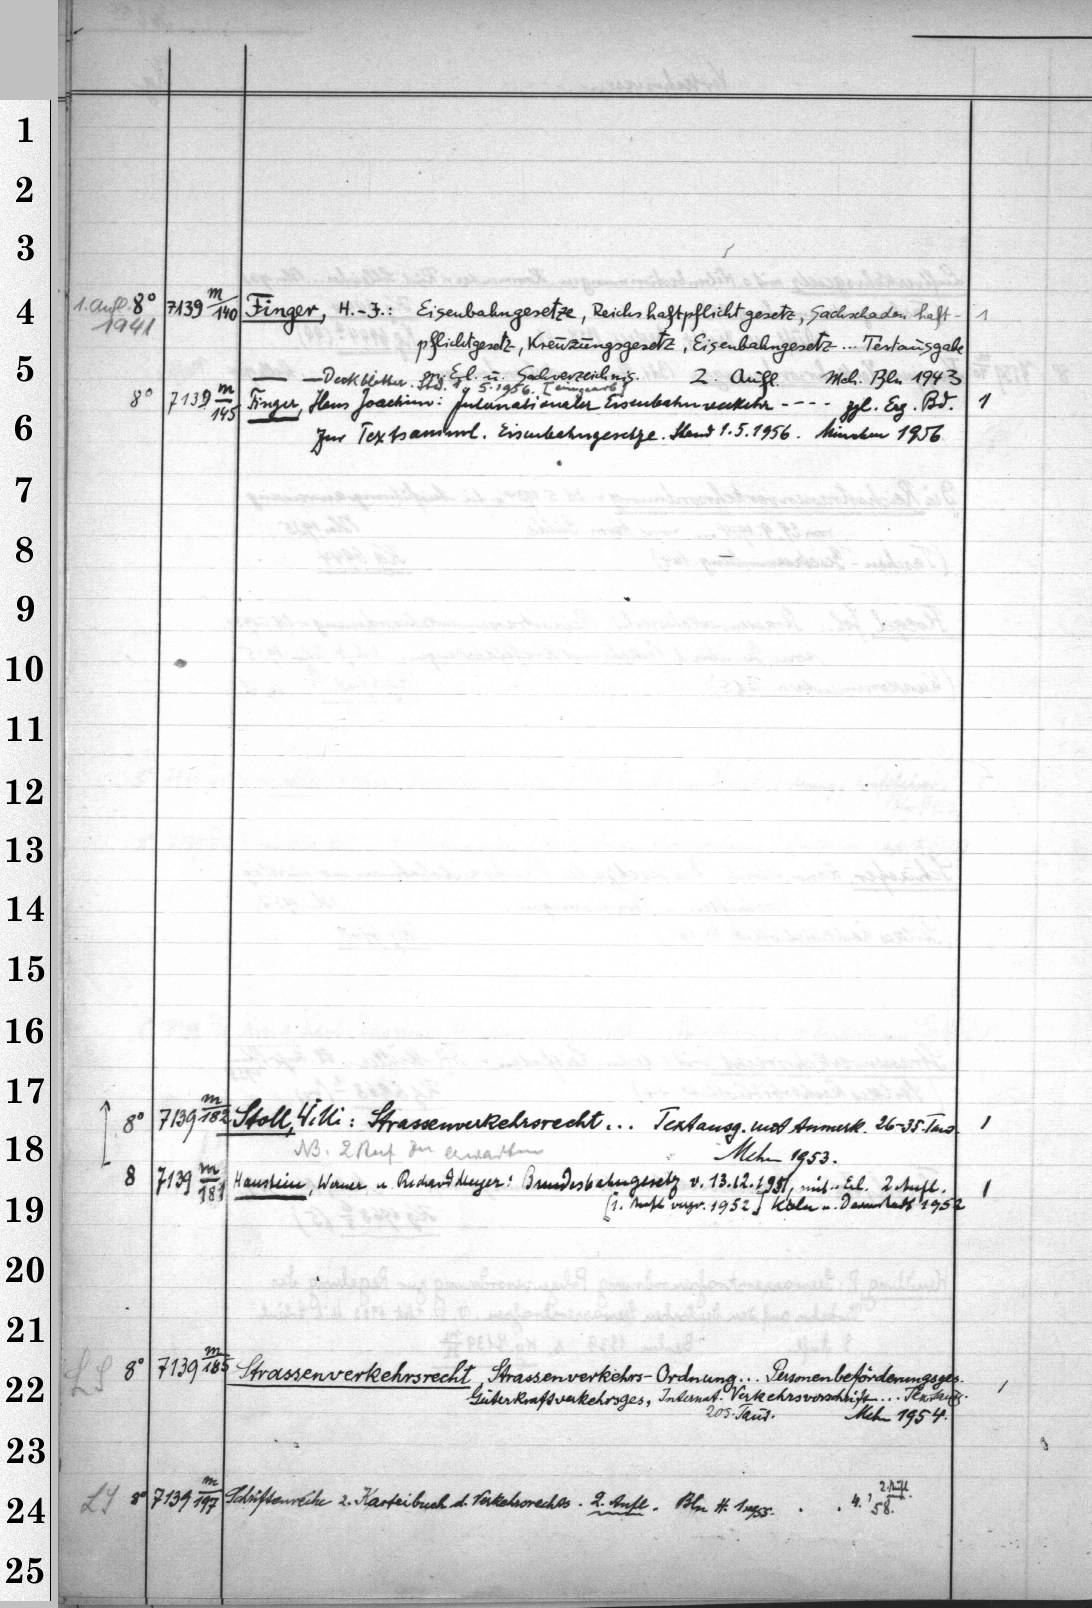 1
2
3
1. Aufl. 8° 7139 m/140 Finger, H.-J.: Eisenbahngesetze, Reichshaftpflichtgesetz, Sachschadenhaft- 1
4
1941
pflichtgesetz, Kreuzungsgesetz, Eisenbahngesetz... Textausgabe
5
— — Deckblätter. m. Erl. u. Sachverzeichnis. 2. Aufl. Mch. Bln 1943
Std. 1. 5. 1956.
8° 7139 m/145 Finger, Hans Joachim: Internationaler Eisenbahnverkehr ---- zgl. Erg. Bd. 1
6
zur Textsamml. Eisenbahngesetze. Stand 1.5.1956. München 1956
7
8
9
10
11
12
13
14
15
16
17
8° 7139 m/182 Stoll, Willi: Strassenverkehrsrecht... Textausg. mit Anmerk. 26-35. Taus. 1
18
NB. 2 Aufl. zu erwarten Mchn 1953.
8 7139 m/181 Haustein, Werner u. Richard Meyer: Bundesbahngesetz v. 13.12.1951, mit Erl. 2. Aufl. 1
19
[1. Aufl. vergr. 1952] Köln u. Darmstadt 1952
20
21
8° 7139 m/185 Strassenverkehrsrecht, Strassenverkehrs-Ordnung... Personenbeförderungsges. 1
22
Güterkraftverkehrsges, Internat. Verkehrsvorschrift... Textausg.
205. Taus. Mchn 1954.
23
24
LS 8° 7139 m/197 Schriftenreihe z. Karteibuch d. Verkehrsrechts. 2. Aufl. Bln H. 1 1955. . . 4. 2. Aufl. 58.
25